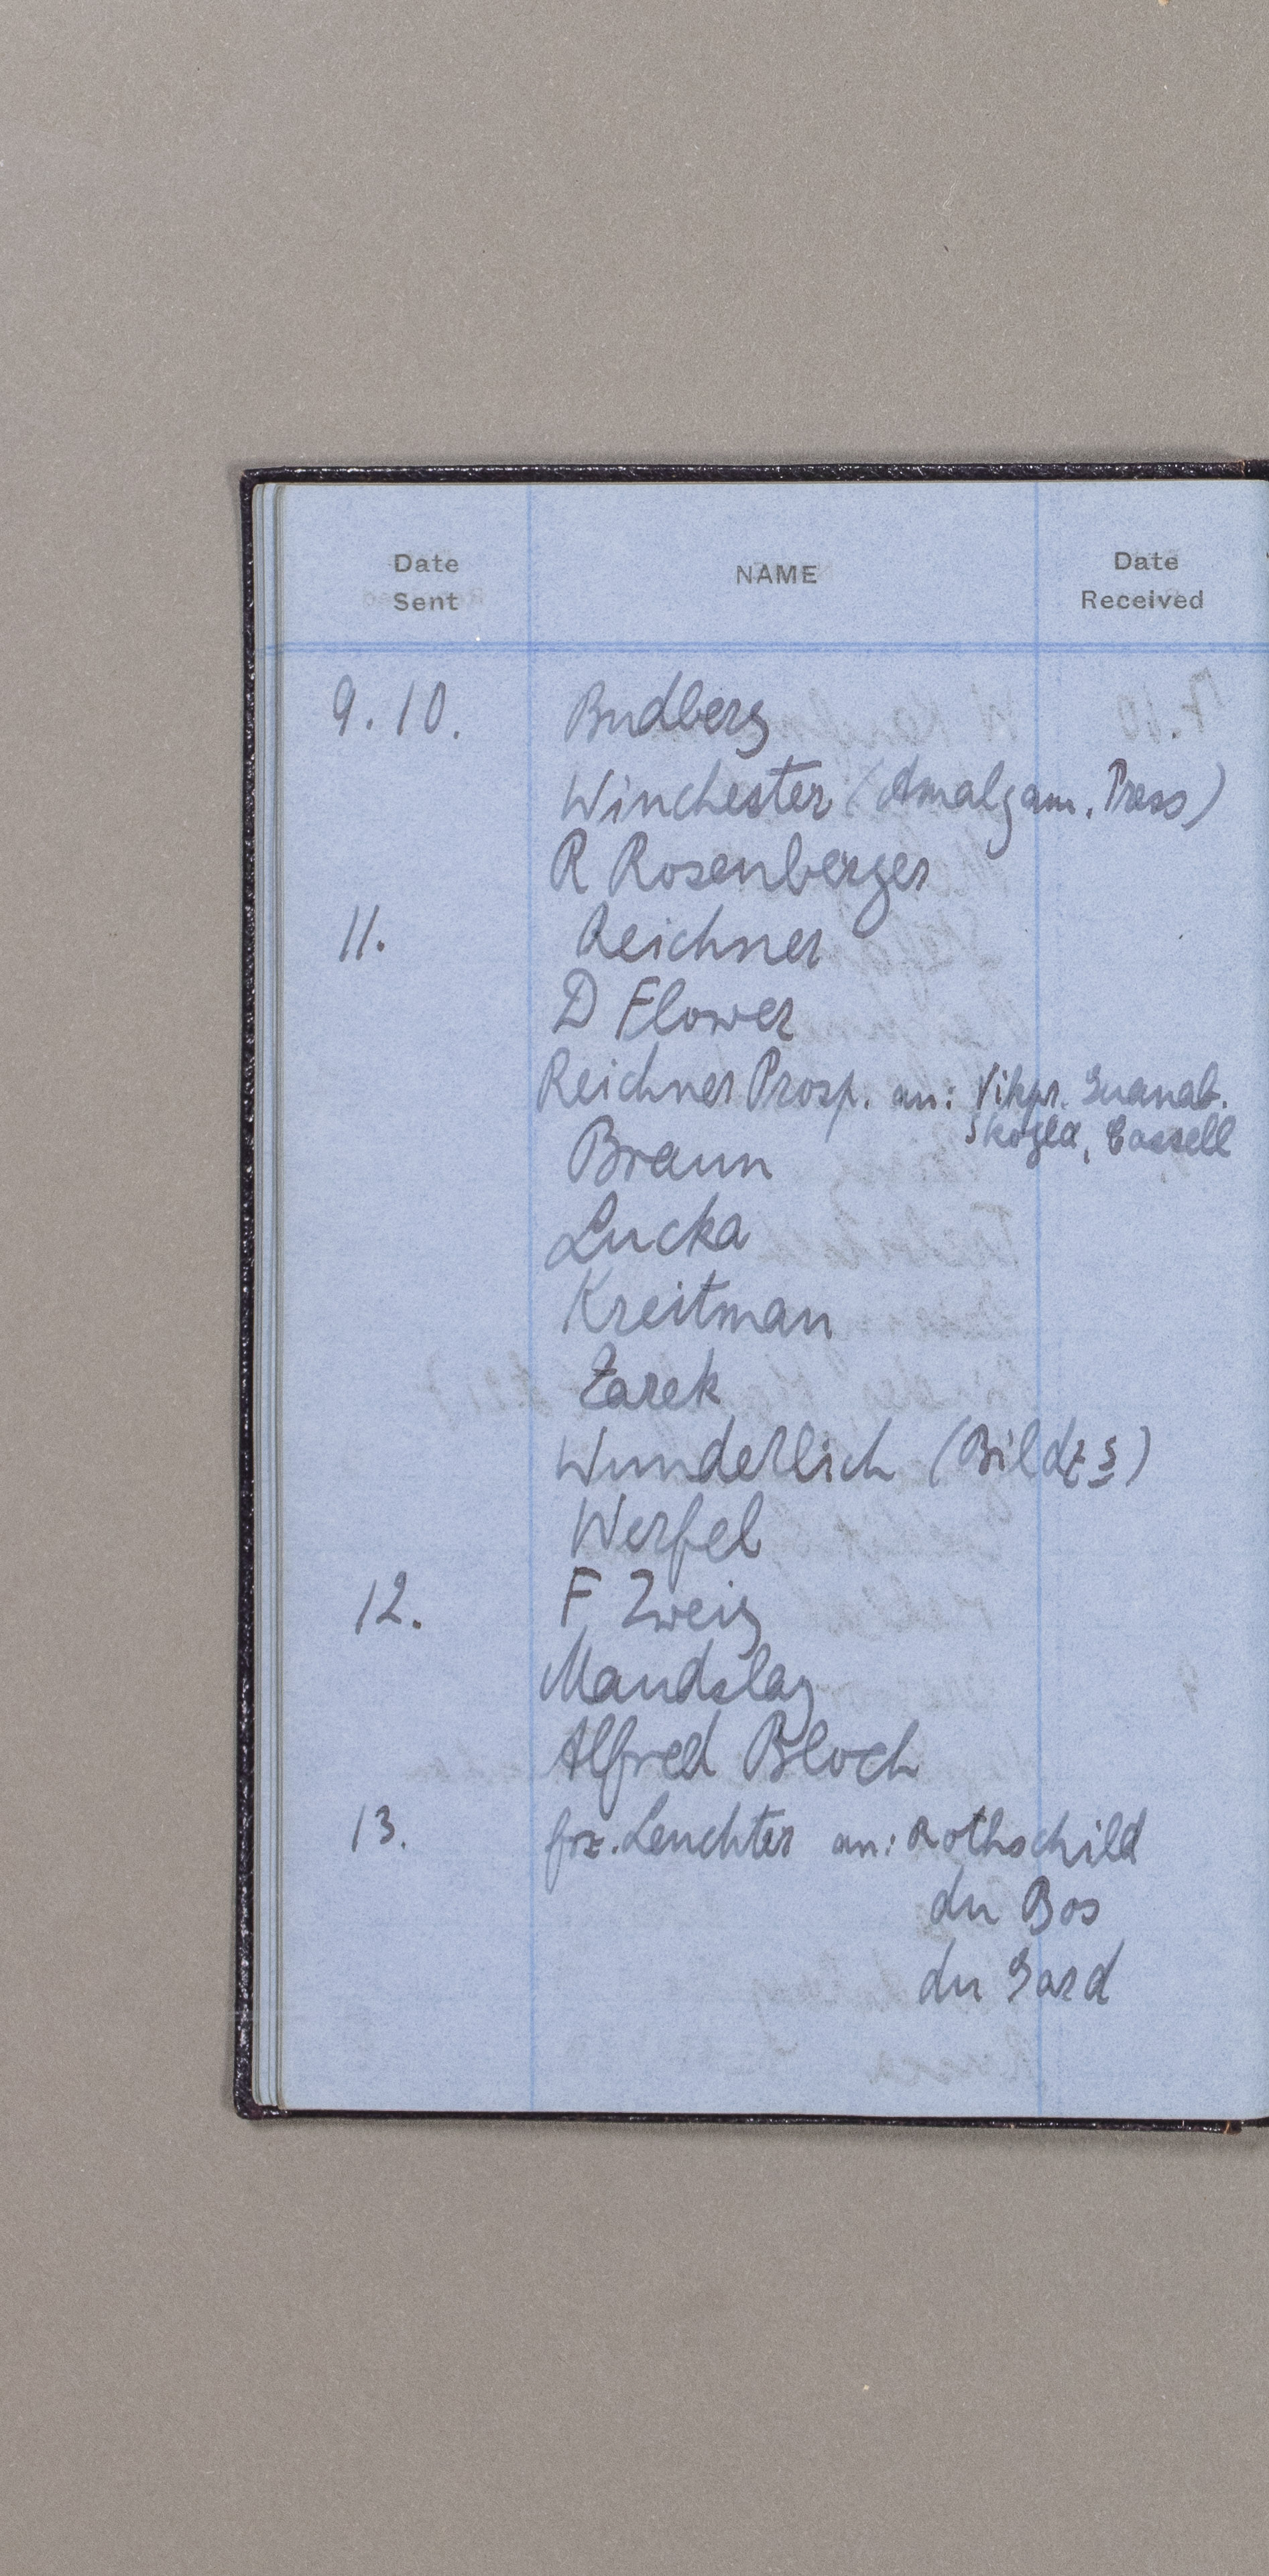 Date Sent NAME Date Received
9.10. Budberg
Winchester (Amalgam. Press)
R Rosenberger
11. Reichner
D Flower
Reichner Prosp. an: Vikpr. Guanab.
Skogld, Cassell
Braun
Lucka
Kreitman
Zarek
Wunderlich (Bildz §)
Werfel
12. F Zweig
Maudslay
Alfred Bloch
13. frz. Leuchter an: Rothschild
du Bos
du Gard